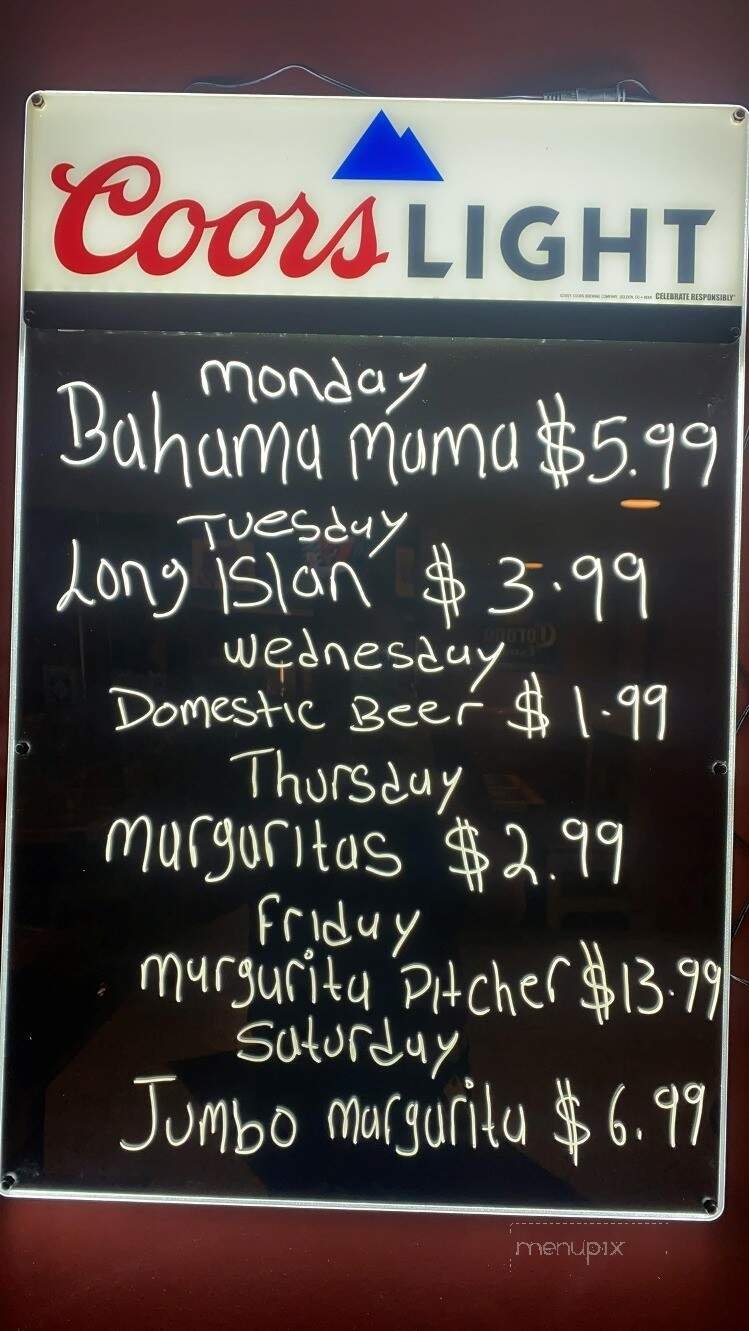 Coors LIGHT
CELEBRATE RESPONSIBLY
Monday
Bahama Mama $5.99
Tuesday
Long Islan $3.99
Wednesday
Domestic Beer $1.99
Thursday
Margaritas $2.99
Friday
Margarita Pitcher $13.99
Saturday
Jumbo Margarita $6.99
menupix